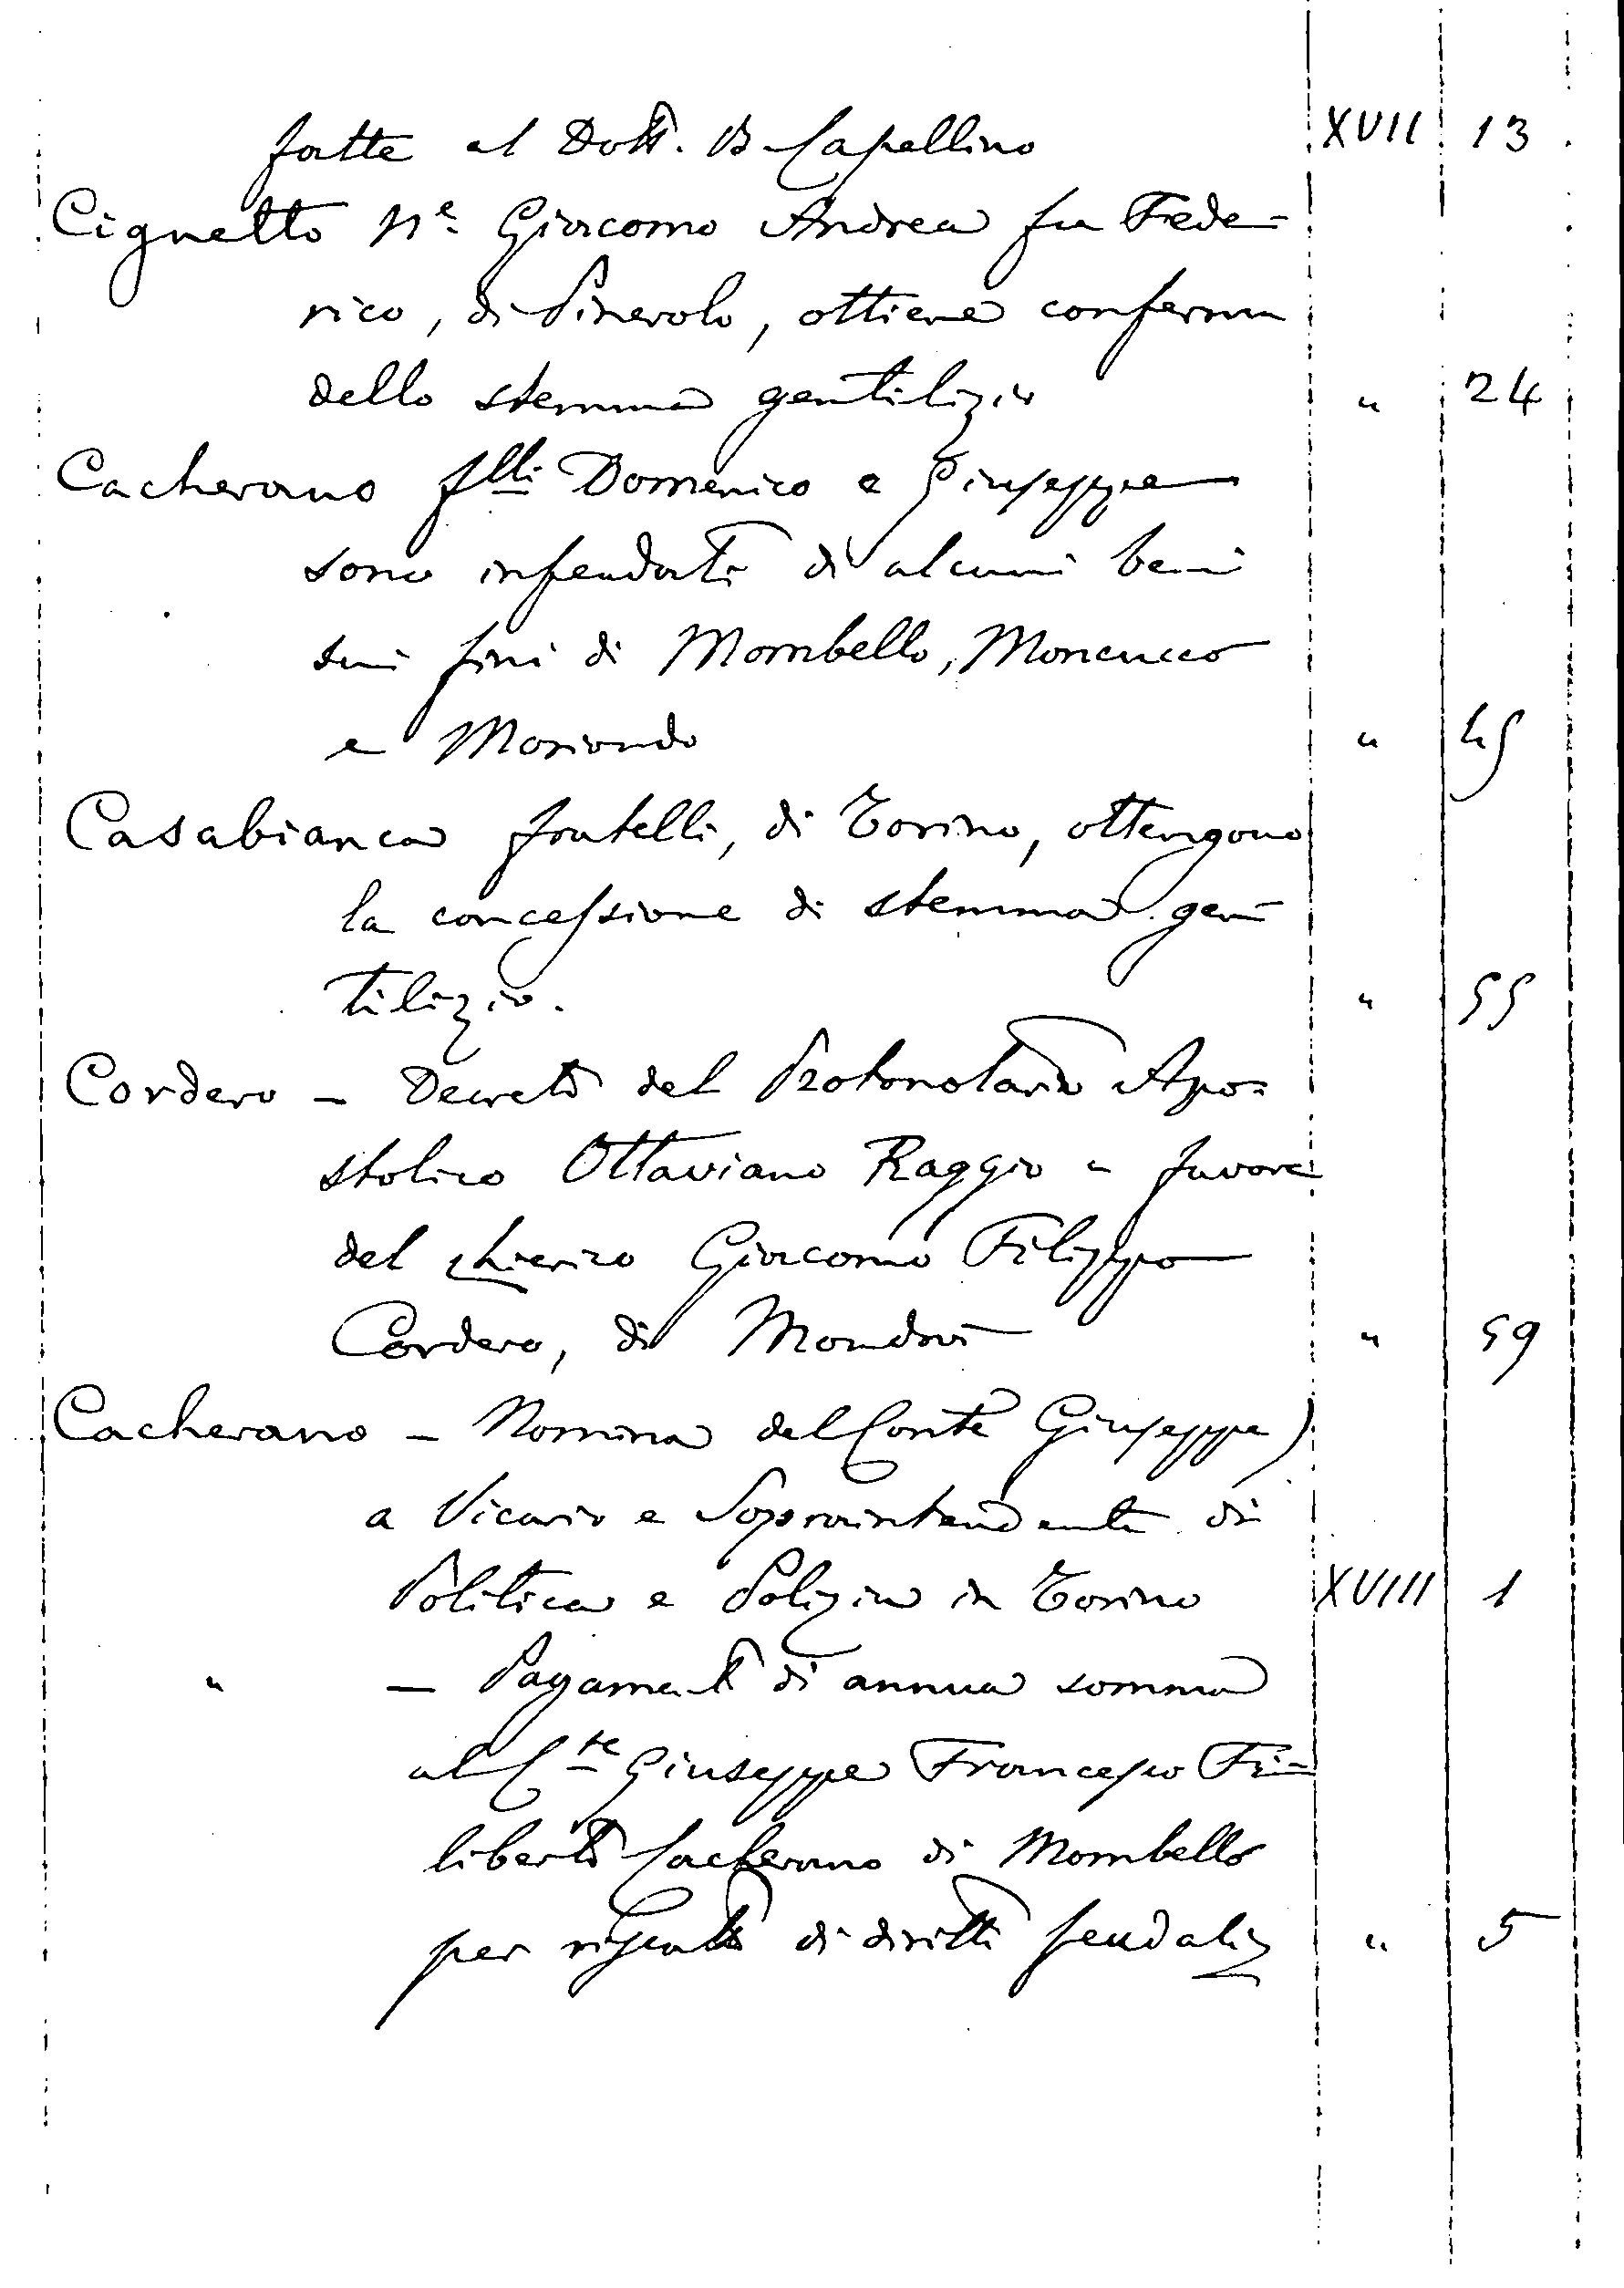 fatte al Dott. B Capellino XVII 13
Cignetto Nᵉ Giacomo Andrea fu Fede-
rico, di Pinerolo, ottiene conferma
dello stemma gentilizio " 24
Cacherano flli Domenico e Giuseppe
sono infeudati di alcuni beni
sui fini di Mombello, Moncucco
e Moriondo " 45
Casabianca fratelli, di Torino, ottengono
la concessione di stemma gen-
tilizio. " 55
Cordero - Decreto del Protonotario Apo-
stolico Ottaviano Raggio a favore
del chierico Giacomo Filippo
Cordero, di Mondovì " 59
Cacherano - Nomina del Conte Giuseppe
a Vicario e Sopraintendente di
Politica e Polizia in Torino XVIII 1
" - Pagamento di annua somma
al Cte Giuseppe Francesco Fi-
liberto Cacherano di Mombello
per riscatto di diritti feudali " 5